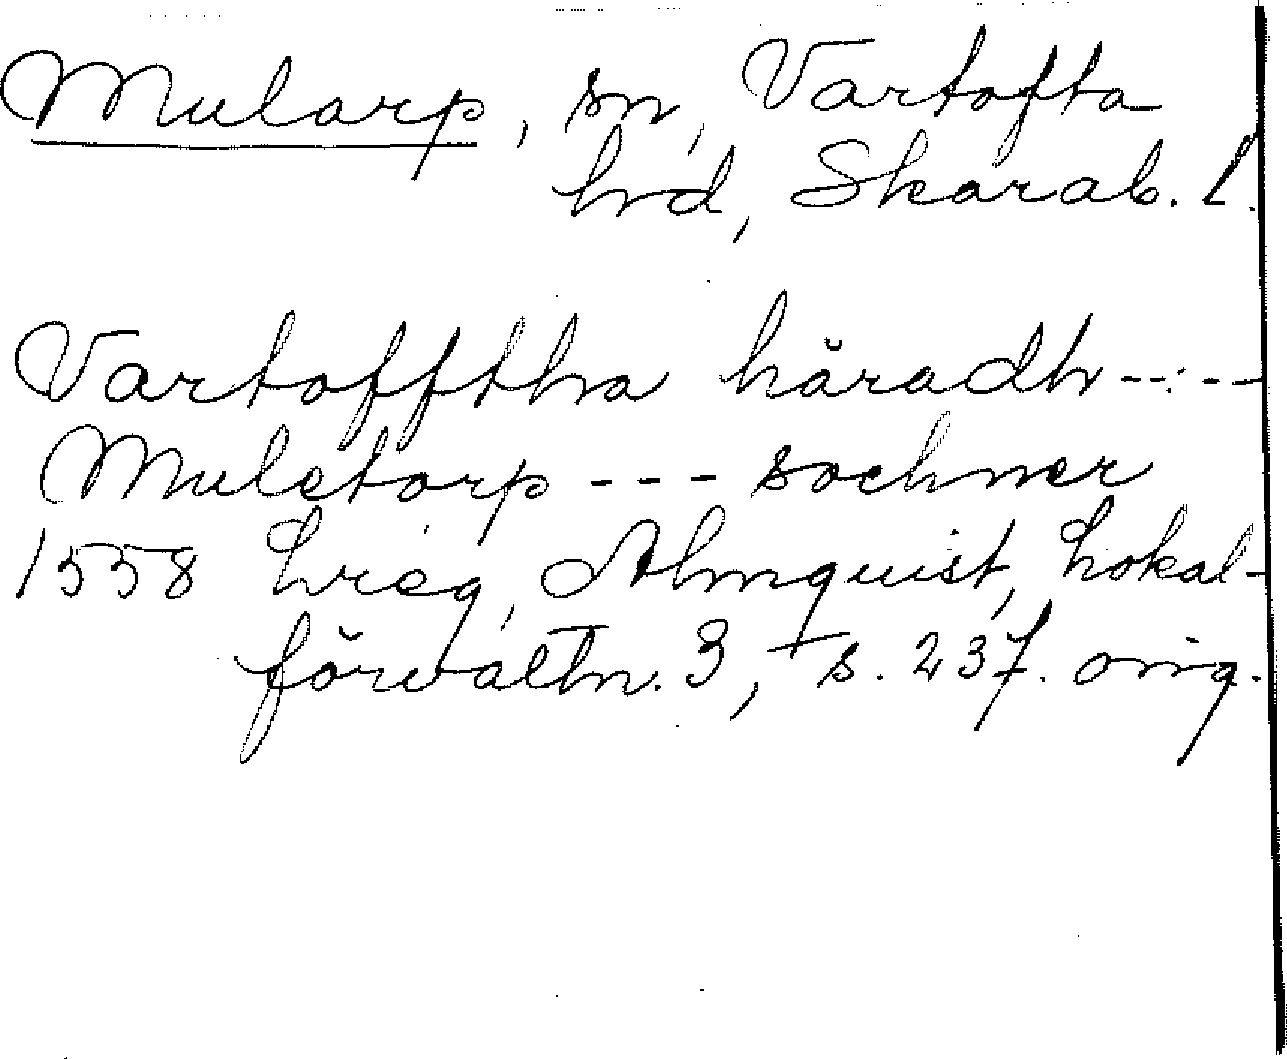 Mularp, sn, Vartofta
hrd, Skarab. l.
Vartofftha häradh -- : --
Muletorp --- sochner
1558 Lreg, Almquist, Lokal-
förvaltn. 3, s. 237. orig.